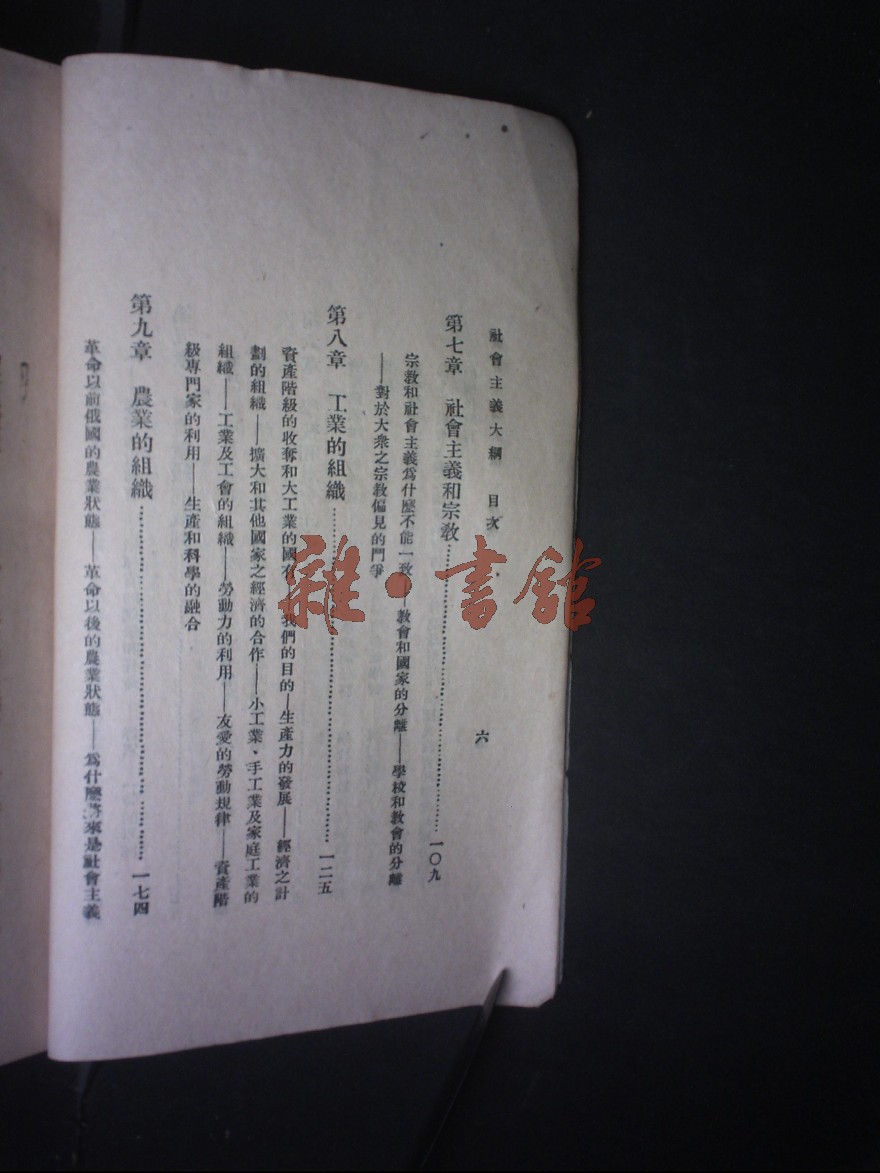 社會主義大綱 目次 六
第七章 社會主義和宗教……一〇九
宗教和社會主義爲什麼不能一致——教會和國家的分離——學校和教會的分離
——對於大衆之宗教偏見的鬥爭
第八章 工業的組織……一二五
資產階級的收奪和大工業的國有——我們的目的——生產力的發展——經濟之計
劃的組織——擴大和其他國家之經濟的合作——小工業、手工業及家庭工業的
組織——工業及工會的組織——勞動力的利用——友愛的勞動規律——資產階
級專門家的利用——生產和科學的融合
第九章 農業的組織……一七四
革命以前俄國的農業狀態——革命以後的農業狀態——爲什麼將來是社會主義
雜·書館